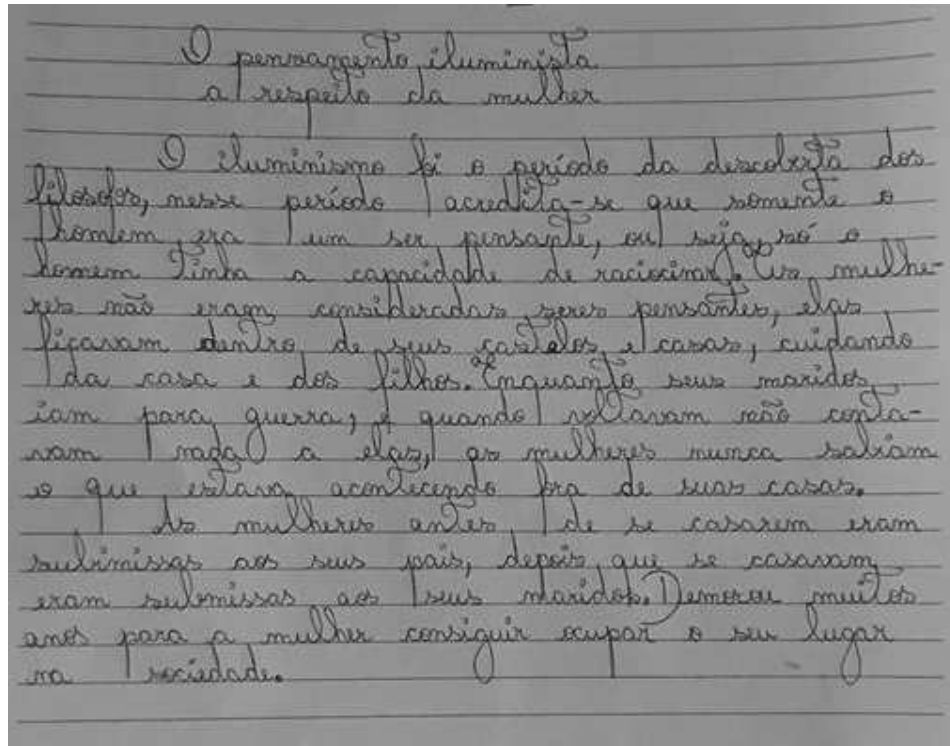 O pensamento iluminista
a respeito da mulher
O iluminismo foi o período da descoberta dos
filosofos, nesse período acredita-se que somente o
homem era um ser pensante, ou seja, só o
homem tinha a capacidade de raciocinar. As mulhe-
res não eram consideradas seres pensantes, elas
ficavam dentro de seus castelos e casas, cuidando
da casa e dos filhos. Enquanto seus maridos
iam para guerra, e quando voltavam não conta-
vam nada a elas, as mulheres nunca sabiam
o que estava acontecendo fora de suas casas.
As mulheres antes de se casarem eram
submissas aos seus pais, depois que se casavam
eram submissas aos seus maridos. Demorou muitos
anos para a mulher consiguir ocupar o seu lugar
na sociedade.